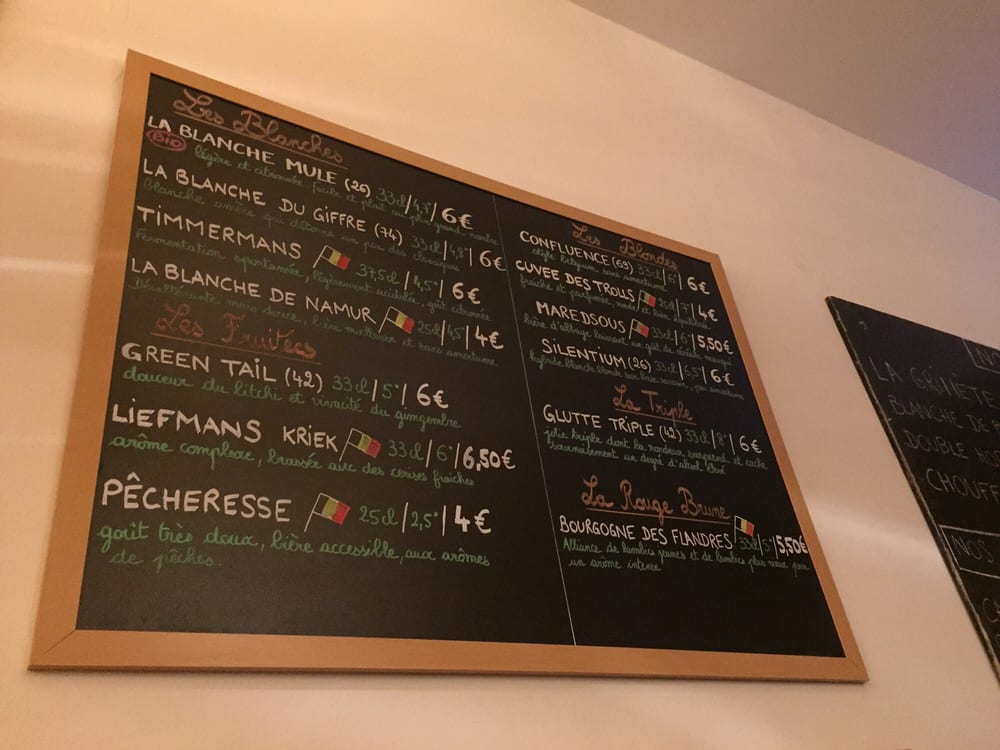 Les Blanches
LA BLANCHE MULE (26) 33cl/4,7°/6€
Bio légère et citronnée, facile et plait au plus grand nombre
LA BLANCHE DU GIFFRE (74) 33cl/4,8°/6€
Blanche amère qui détonne un peu des classiques
TIMMERMANS 37,5cl/4,5°/6€
Fermentation spontannée, légèrement acidulée, goût citronnée
LA BLANCHE DE NAMUR 25cl/4,5°/4€
Désaltérante mais douce, bière moelleuse et sans amertume
Les Fruitées
GREEN TAIL (42) 33cl/5°/6€
douceur du litchi et vivacité du gingembre
LIEFMANS KRIEK 33cl/6°/6,50€
arôme complexe, brassée avec des cerises fraîches
PÊCHERESSE 25cl/2,5°/4€
goût très doux, bière accessible, aux arômes
de pêches.
Les Blondes
CONFLUENCE (69) 33cl/6°/6€
style belgium, sans amertume
CUVEE DES TROLLS 25cl/7°/4€
fraîche et parfumée, ronde et bien équilibrée
MAREDSOUS 33cl/6°/5,50€
bière d'abbaye laissant un goût de
SILENTIUM (26) 33cl/5,5°/6€
hybride blanche blonde aux
La Triple
GLUTTE TRIPLE (42) 33cl/8°/6€
jolie triple dont la rondeur surprend et cache
sournoisement un degré d'alcool élevé
La Rouge Brune
BOURGOGNE DES FLANDRES 33cl/5°/5,50€
Alliance de lambics jeunes et de lambics plus vieux pour
un arôme intense
LA GRIMETE
BLANCHE DE
DOUBLE HO
CHOUFF
NOS